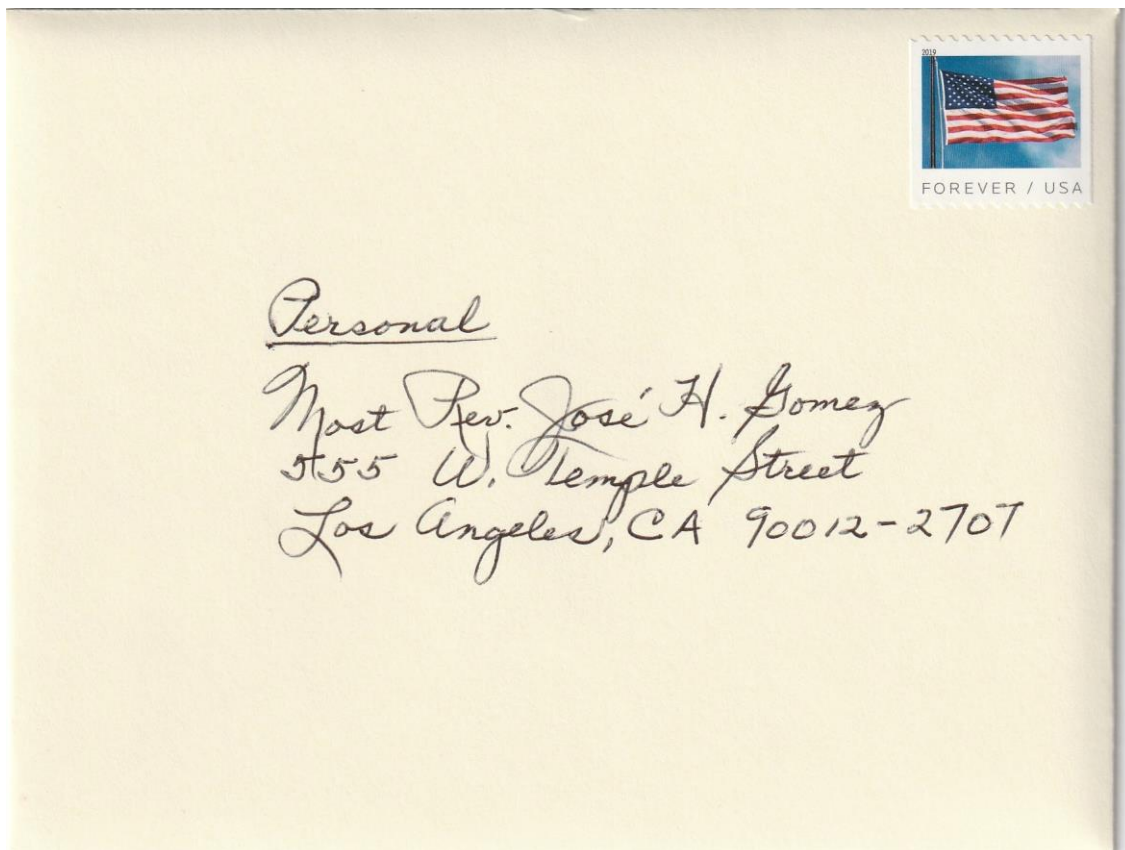 2019
FOREVER / USA
Personal
Most Rev. José H. Gomez
555 W. Temple Street
Los Angeles, CA 90012-2707